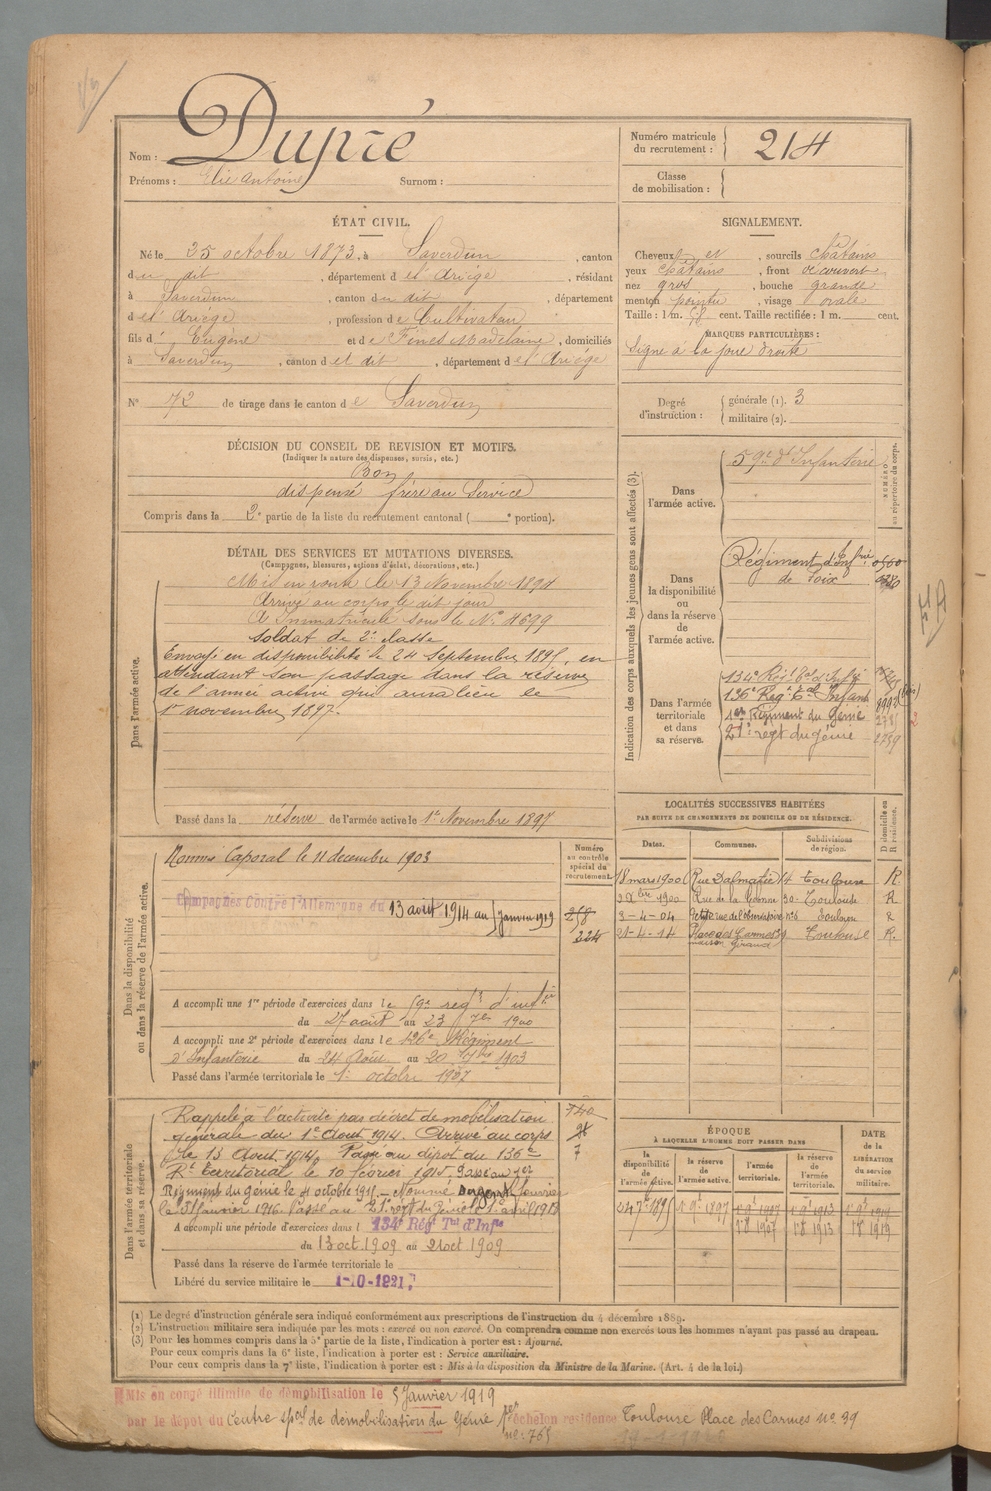 Nom : Dupré
Prénoms : Elie Antoine Surnom :
Numéro matricule du recrutement : 214
Classe de mobilisation :
ÉTAT CIVIL.
Né le 25 octobre 1873, à Saverdun, canton
du dit, département de l'Ariège, résidant
à Saverdun, canton du dit, département
de l'Ariège, profession de Cultivateur
fils d' Eugène et de Fines Madelaine, domiciliés
à Saverdun, canton du dit, département de l'Ariège
N° 72 de tirage dans le canton de Saverdun
DÉCISION DU CONSEIL DE REVISION ET MOTIFS.
(Indiquer la nature des dispenses, sursis, etc.)
Bon
dispensé frère au Service
Compris dans la 2e partie de la liste du recrutement cantonal ( e portion).
SIGNALEMENT.
Cheveux et , sourcils châtains
yeux châtains , front découvert
nez gros , bouche grande
menton pointu , visage ovale
Taille : 1 m. 58 cent. Taille rectifiée : 1 m. cent.
MARQUES PARTICULIÈRES :
Signe à la joue droite
Degré d'instruction : générale (1). 3
militaire (2).
DÉTAIL DES SERVICES ET MUTATIONS DIVERSES.
(Campagnes, blessures, actions d'éclat, décorations, etc.)
Dans l'armée active.
Mis en route le 13 Novembre 1894
Arrivé au corps le dit jour
Immatriculé sous le N° 4699
soldat de 2e classe
Envoyé en disponibilité le 24 Septembre 1895, en
attendant son passage dans la réserve
de l'armée active qui aura lieu le
1er novembre 1897.
Passé dans la réserve de l'armée active le 1er Novembre 1897
Indication des corps auxquels les jeunes gens sont affectés (3).
NUMÉRO au répertoire du corps.
Dans l'armée active.
59e d'Infanterie
Dans la disponibilité ou dans la réserve de l'armée active.
Régiment d'Infrie
de Foix
Dans l'armée territoriale et dans sa réserve.
134e Régt Tal d'Infie
136e Régt Tal Infant
1er Régiment du Génie
21e régt du génie 2759
LOCALITÉS SUCCESSIVES HABITÉES
PAR SUITE DE CHANGEMENTS DE DOMICILE OU DE RÉSIDENCE.
Dates. Communes. Subdivisions de région. D domicile ou R résidence.
18 mars 1900 Rue Dalmatie 14 Toulouse R.
1900 Rue de la 30 Toulouse R
3-4-04 Petite rue de l'observatoire n° 6 Toulouse R
21-4-14 Place des Carmes 39 Toulouse R.
maison Giraud
Dans la disponibilité ou dans la réserve de l'armée active.
Numéro au contrôle spécial du recrutement
Nommé Caporal le 11 decembre 1903
Campagnes Contre l'Allemagne du 13 août 1914 au 5 Janvier 1919
218
224
A accompli une 1re période d'exercices dans le 59e régt d'infrie
du 27 août au 23 7bre 1900
A accompli une 2e période d'exercices dans le 126e Régiment
d'Infanterie du 24 Août au 20 7bre 1903
Passé dans l'armée territoriale le 1er octobre 1907
Dans l'armée territoriale et dans sa réserve.
Rappelé à l'activité par décret de mobilisation
générale du 1er Aout 1914. Arrivé au corps
le 13 Aout 1914. Passé au dépôt du 136e
Rt Territorial le 10 février 1915. Passé au 1er
Régiment du Génie le 4 octobre 1915 - Nommé Sergent fourrier
le 31 janvier 1916. Passé au 21e régt du Génie le 1er avril 1918
A accompli une période d'exercices dans l 134e Régt Tal d'Infie
du 13 oct. 1909 au 21 oct 1909
Passé dans la réserve de l'armée territoriale le
Libéré du service militaire le 1-10-1921.
740
7
ÉPOQUE À LAQUELLE L'HOMME DOIT PASSER DANS
la disponibilité de l'armée active. la réserve de l'armée active. l'armée territoriale. la réserve de l'armée territoriale.
DATE DE LA LIBÉRATION du service militaire.
24 7bre 1895 1er 9bre 1897 1er 9bre 1907 1er 9bre 1913 1er 9bre 1919
1er 8 1907 1er 8 1913 1er 8 1919
(1) Le degré d'instruction générale sera indiqué conformément aux prescriptions de l'instruction du 4 décembre 1889.
(2) L'instruction militaire sera indiquée par les mots : exercé ou non exercé. On comprendra comme non exercés tous les hommes n'ayant pas passé au drapeau.
(3) Pour les hommes compris dans la 5e partie de la liste, l'indication à porter est : Ajourné.
Pour ceux compris dans la 6e liste, l'indication à porter est : Service auxiliaire.
Pour ceux compris dans la 7e liste, l'indication à porter est : Mis à la disposition du Ministre de la Marine. (Art. 4 de la loi.)
Mis en congé illimité de démobilisation le 5 Janvier 1919
par le dépôt du Centre spal de démobilisation du Génie 1er échelon résidence Toulouse Place des Carmes n° 39
n°: 765